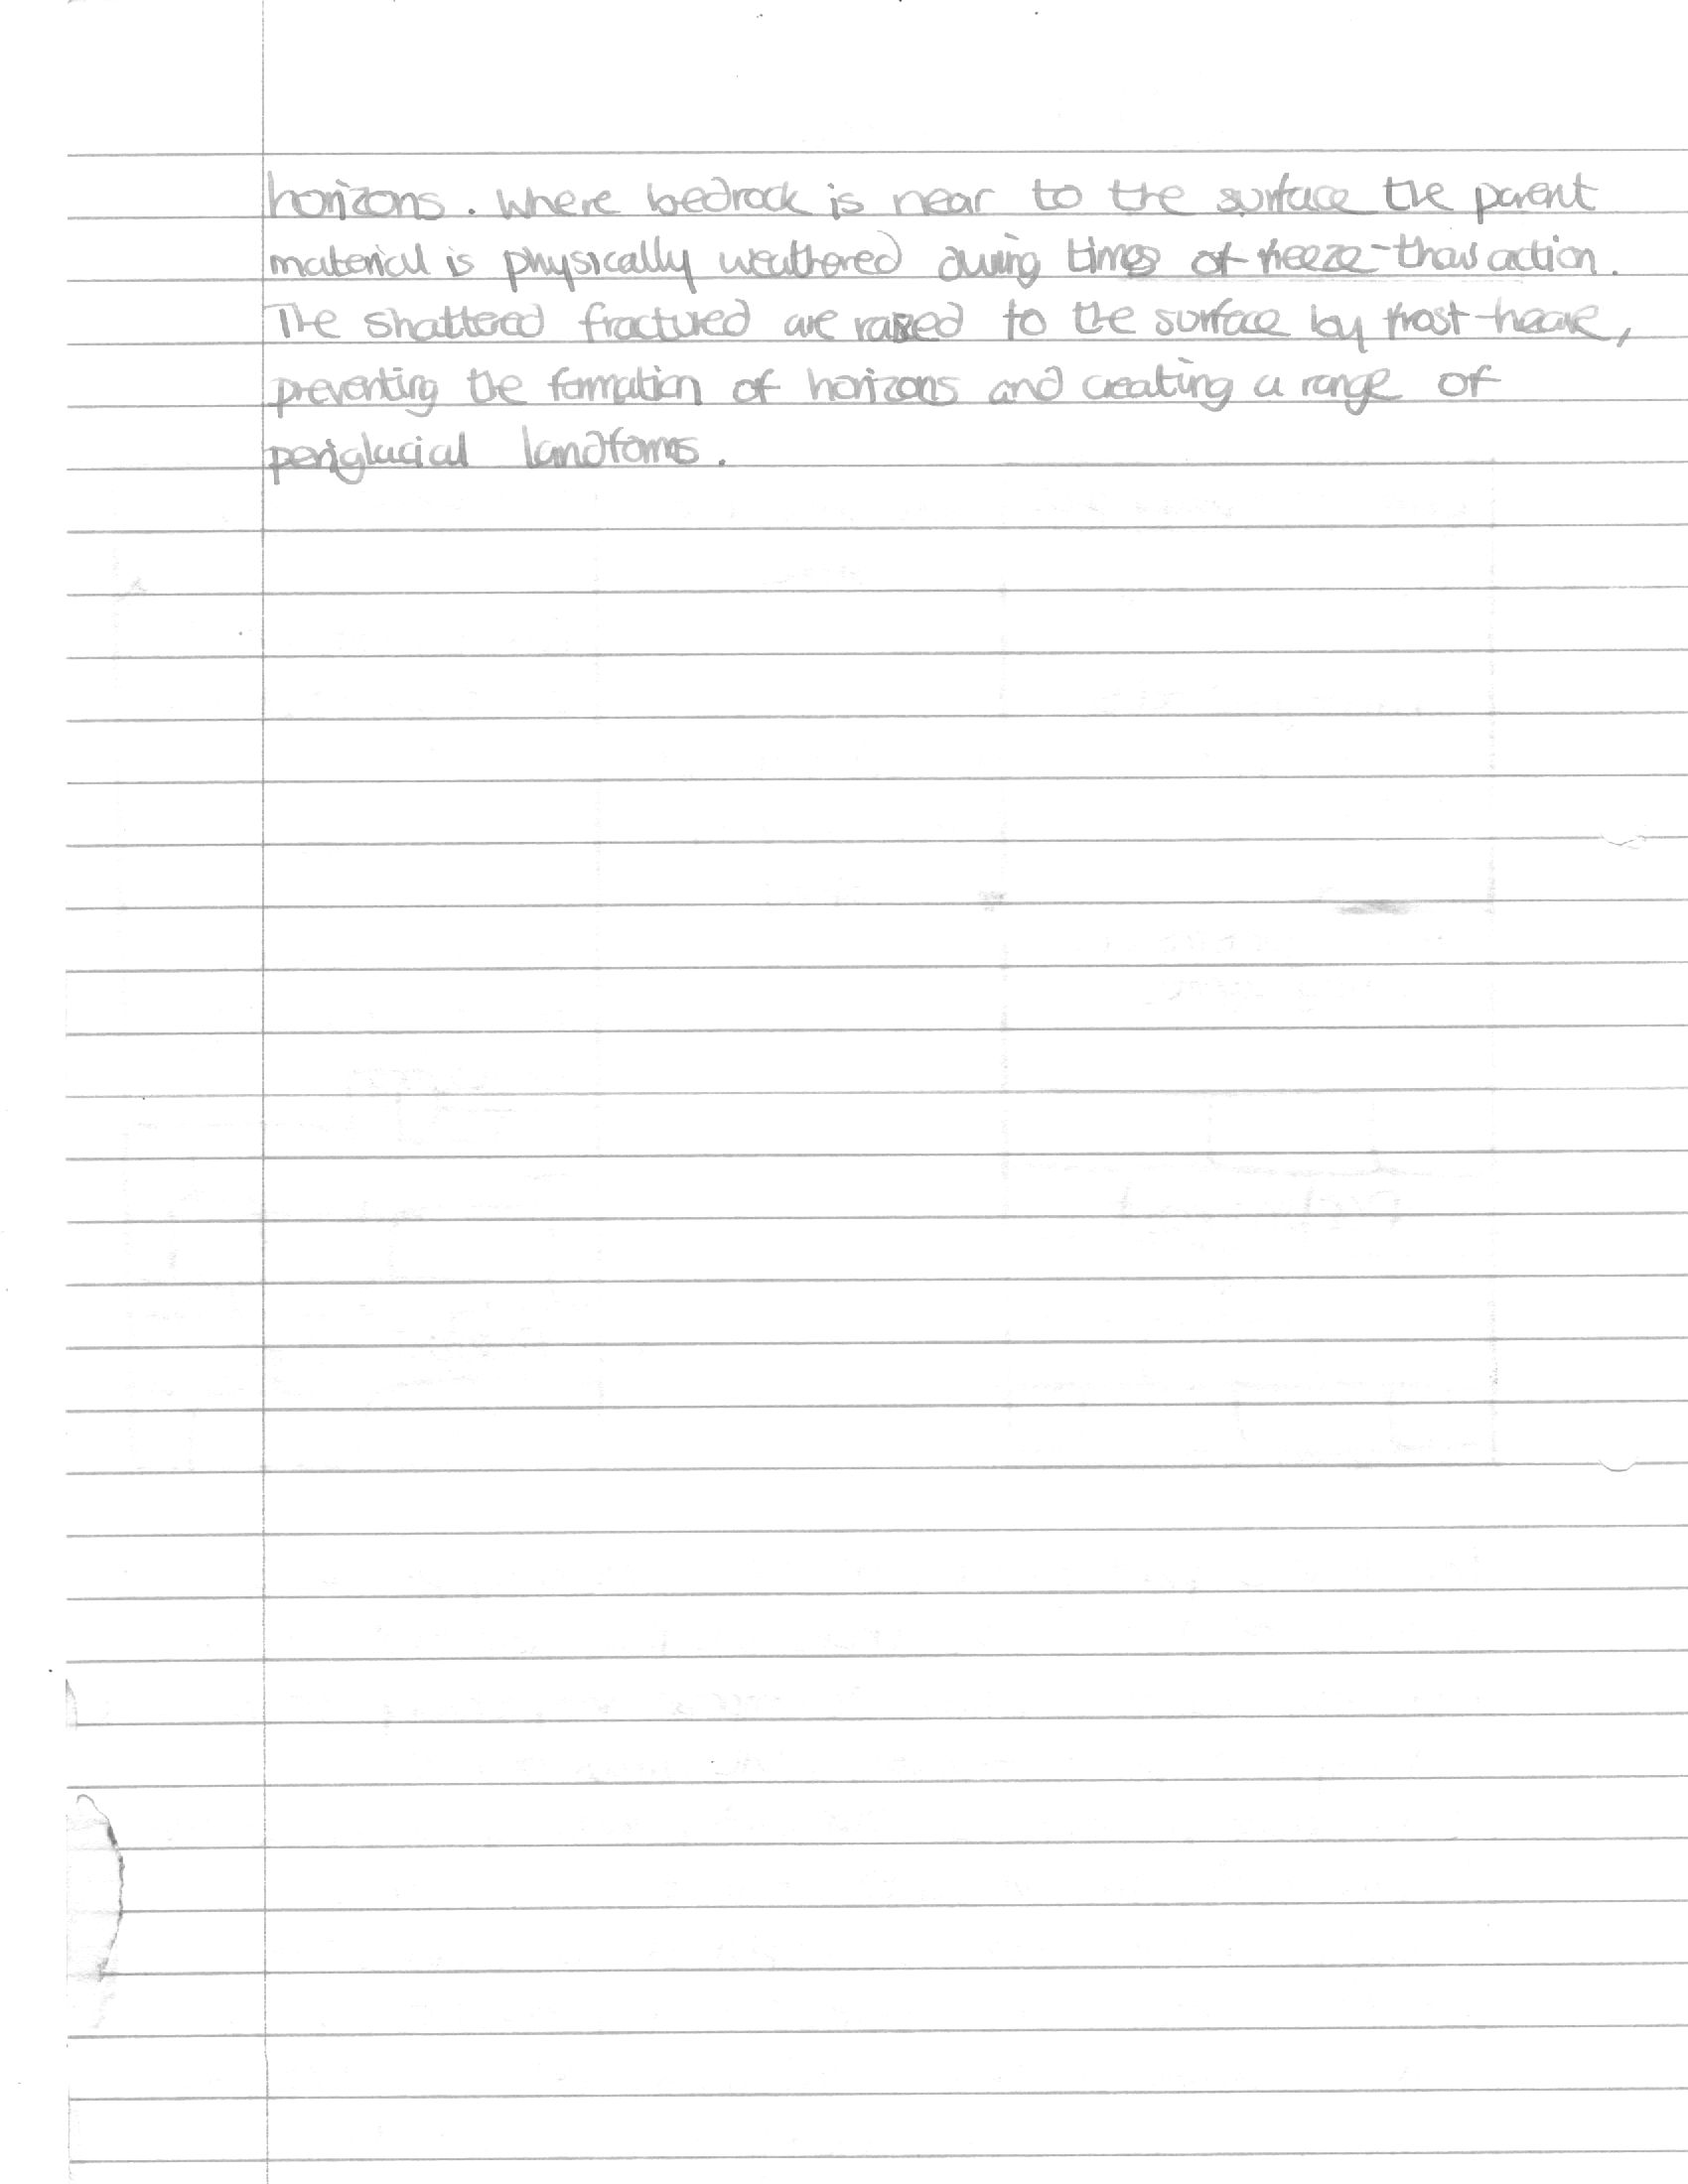 horizons. Where bedrock is near to the surface the parent
material is physically weathered during times of freeze-thaw action.
The shattered fractured are raised to the surface by frost-heave,
preventing the formation of horizons and creating a range of
periglacial landforms.